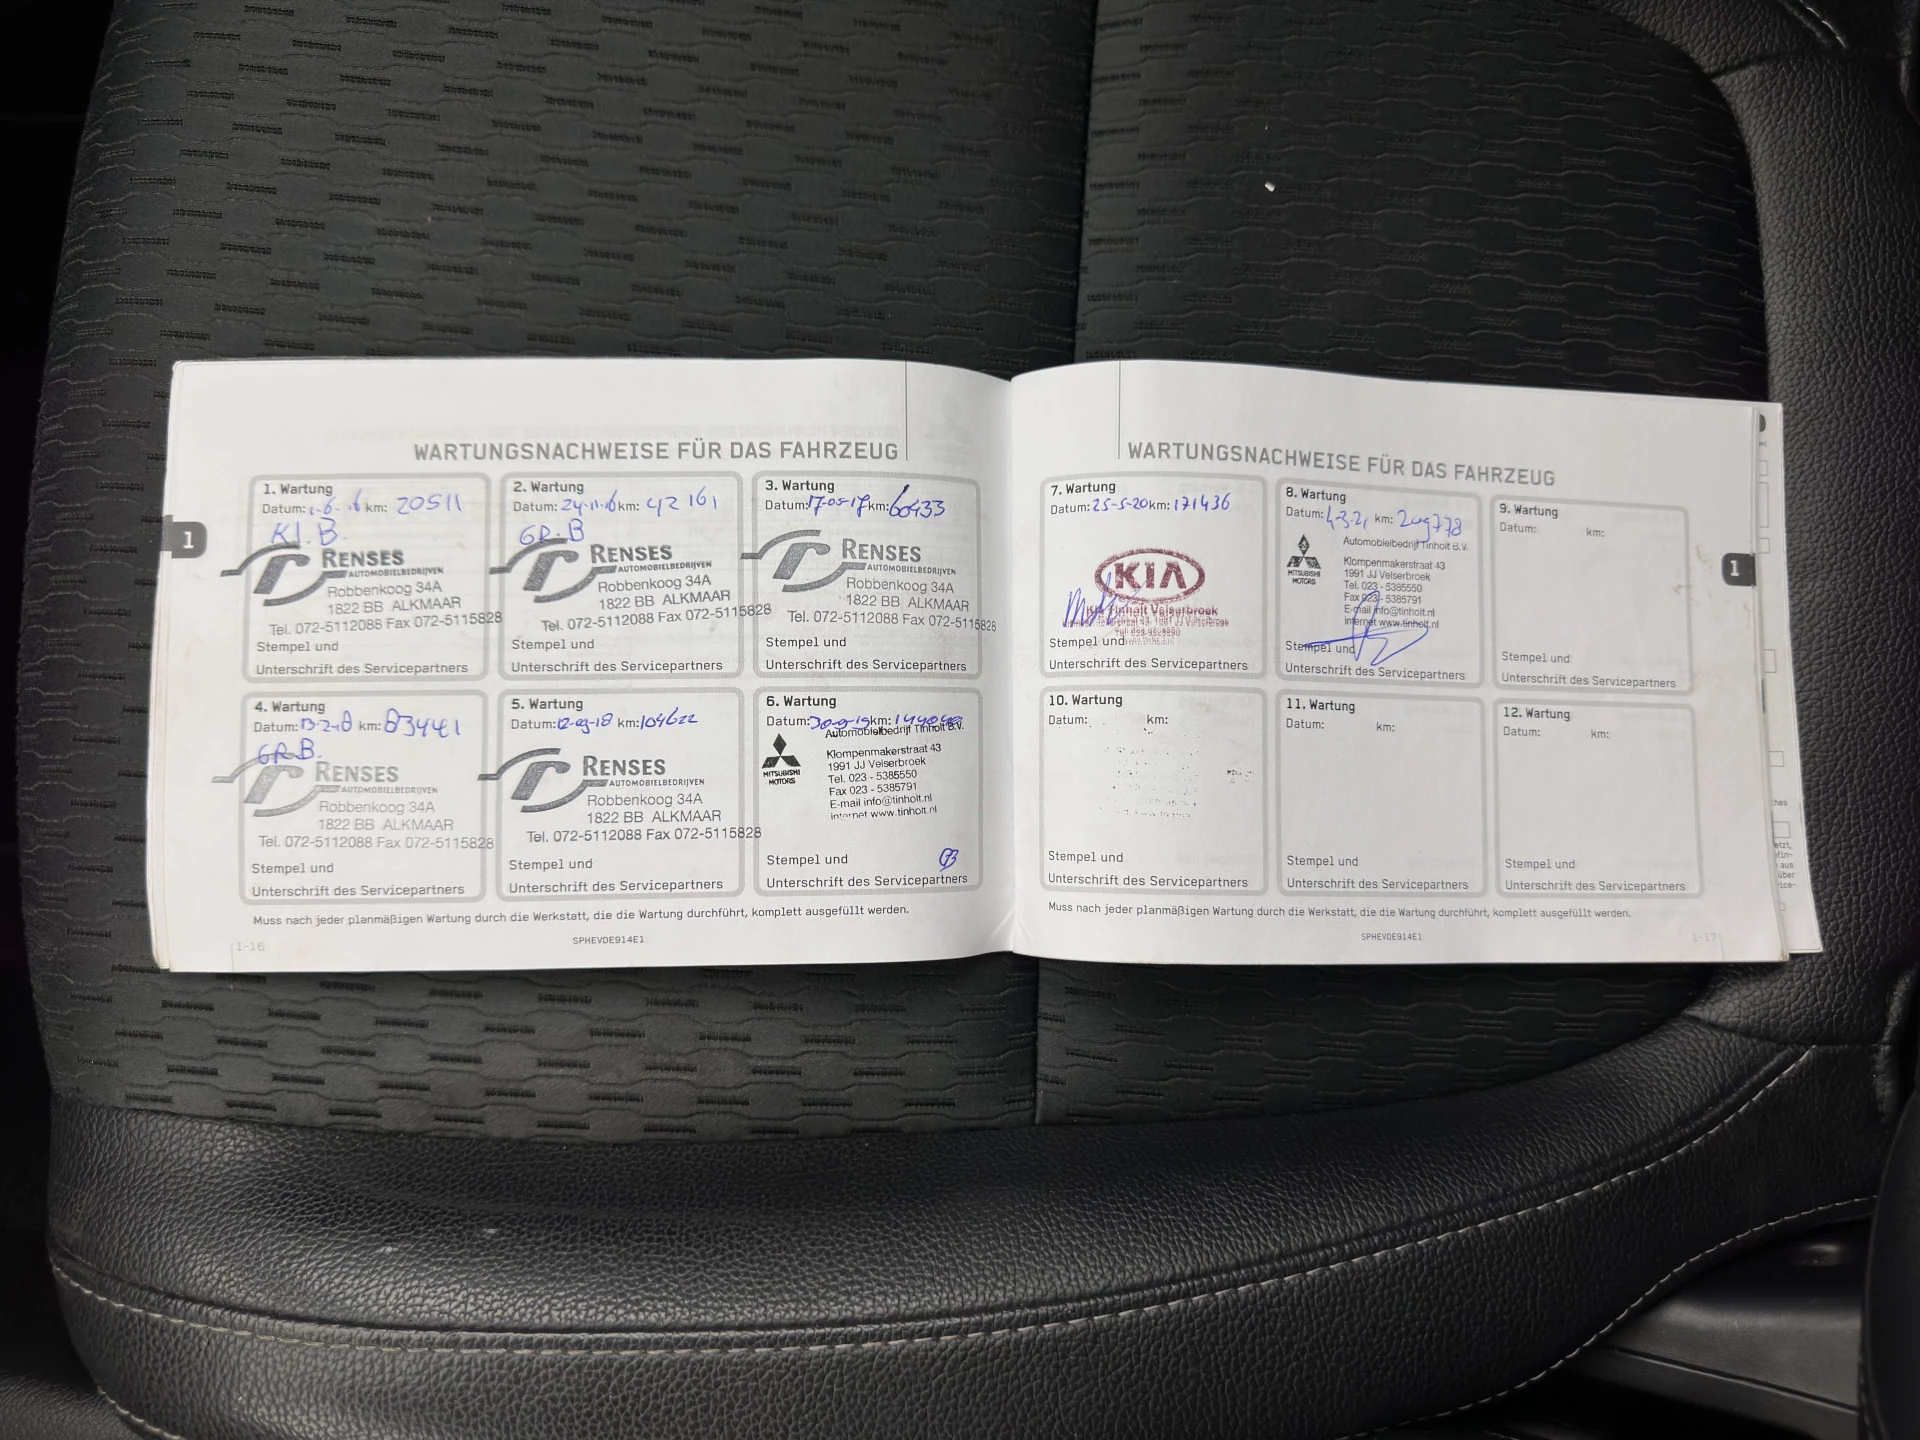 WARTUNGSNACHWEISE FÜR DAS FAHRZEUG
1
1. Wartung
Datum: km: 20511
Kl. B.
RENSES
AUTOMOBIELBEDRIJVEN
Robbenkoog 34A
1822 BB ALKMAAR
Tel. 072-5112088 Fax 072-5115828
Stempel und
Unterschrift des Servicepartners
2. Wartung
Datum: 24-11-16 km: 42161
GR. B
RENSES
AUTOMOBIELBEDRIJVEN
Robbenkoog 34A
1822 BB ALKMAAR
Tel. 072-5112088 Fax 072-5115828
Stempel und
Unterschrift des Servicepartners
3. Wartung
Datum: 17-05-17 km: 60433
RENSES
AUTOMOBIELBEDRIJVEN
Robbenkoog 34A
1822 BB ALKMAAR
Tel. 072-5112088 Fax 072-5115828
Stempel und
Unterschrift des Servicepartners
4. Wartung
Datum: 13-2-18 km: 83441
GR.B.
RENSES
AUTOMOBIELBEDRIJVEN
Robbenkoog 34A
1822 BB ALKMAAR
Tel. 072-5112088 Fax 072-5115828
Stempel und
Unterschrift des Servicepartners
5. Wartung
Datum: 12-09-18 km: 104622
RENSES
AUTOMOBIELBEDRIJVEN
Robbenkoog 34A
1822 BB ALKMAAR
Tel. 072-5112088 Fax 072-5115828
Stempel und
Unterschrift des Servicepartners
6. Wartung
Datum: km:
Automobielbedrijf Tinholt B.V.
MITSUBISHI
MOTORS
Klompenmakerstraat 43
1991 JJ Velserbroek
Tel. 023 - 5385550
Fax 023 - 5385791
E-mail info@tinholt.nl
internet www.tinholt.nl
Stempel und
Unterschrift des Servicepartners
Muss nach jeder planmäßigen Wartung durch die Werkstatt, die die Wartung durchführt, komplett ausgefüllt werden.
1-16
SPHEVDE914E1
WARTUNGSNACHWEISE FÜR DAS FAHRZEUG
1
7. Wartung
Datum: 25-5-20 km: 171436
KIA
Kia Tinholt Velserbroek
Stempel und
Unterschrift des Servicepartners
8. Wartung
Datum: km: 209778
Automobielbedrijf Tinholt B.V.
MITSUBISHI
MOTORS
Klompenmakerstraat 43
1991 JJ Velserbroek
Tel. 023 - 5385550
Fax 023 - 5385791
E-mail info@tinholt.nl
internet www.tinholt.nl
Stempel und
Unterschrift des Servicepartners
9. Wartung
Datum: km:
Stempel und
Unterschrift des Servicepartners
10. Wartung
Datum: km:
Stempel und
Unterschrift des Servicepartners
11. Wartung
Datum: km:
Stempel und
Unterschrift des Servicepartners
12. Wartung
Datum: km:
Stempel und
Unterschrift des Servicepartners
Muss nach jeder planmäßigen Wartung durch die Werkstatt, die die Wartung durchführt, komplett ausgefüllt werden.
SPHEVDE914E1
1-17